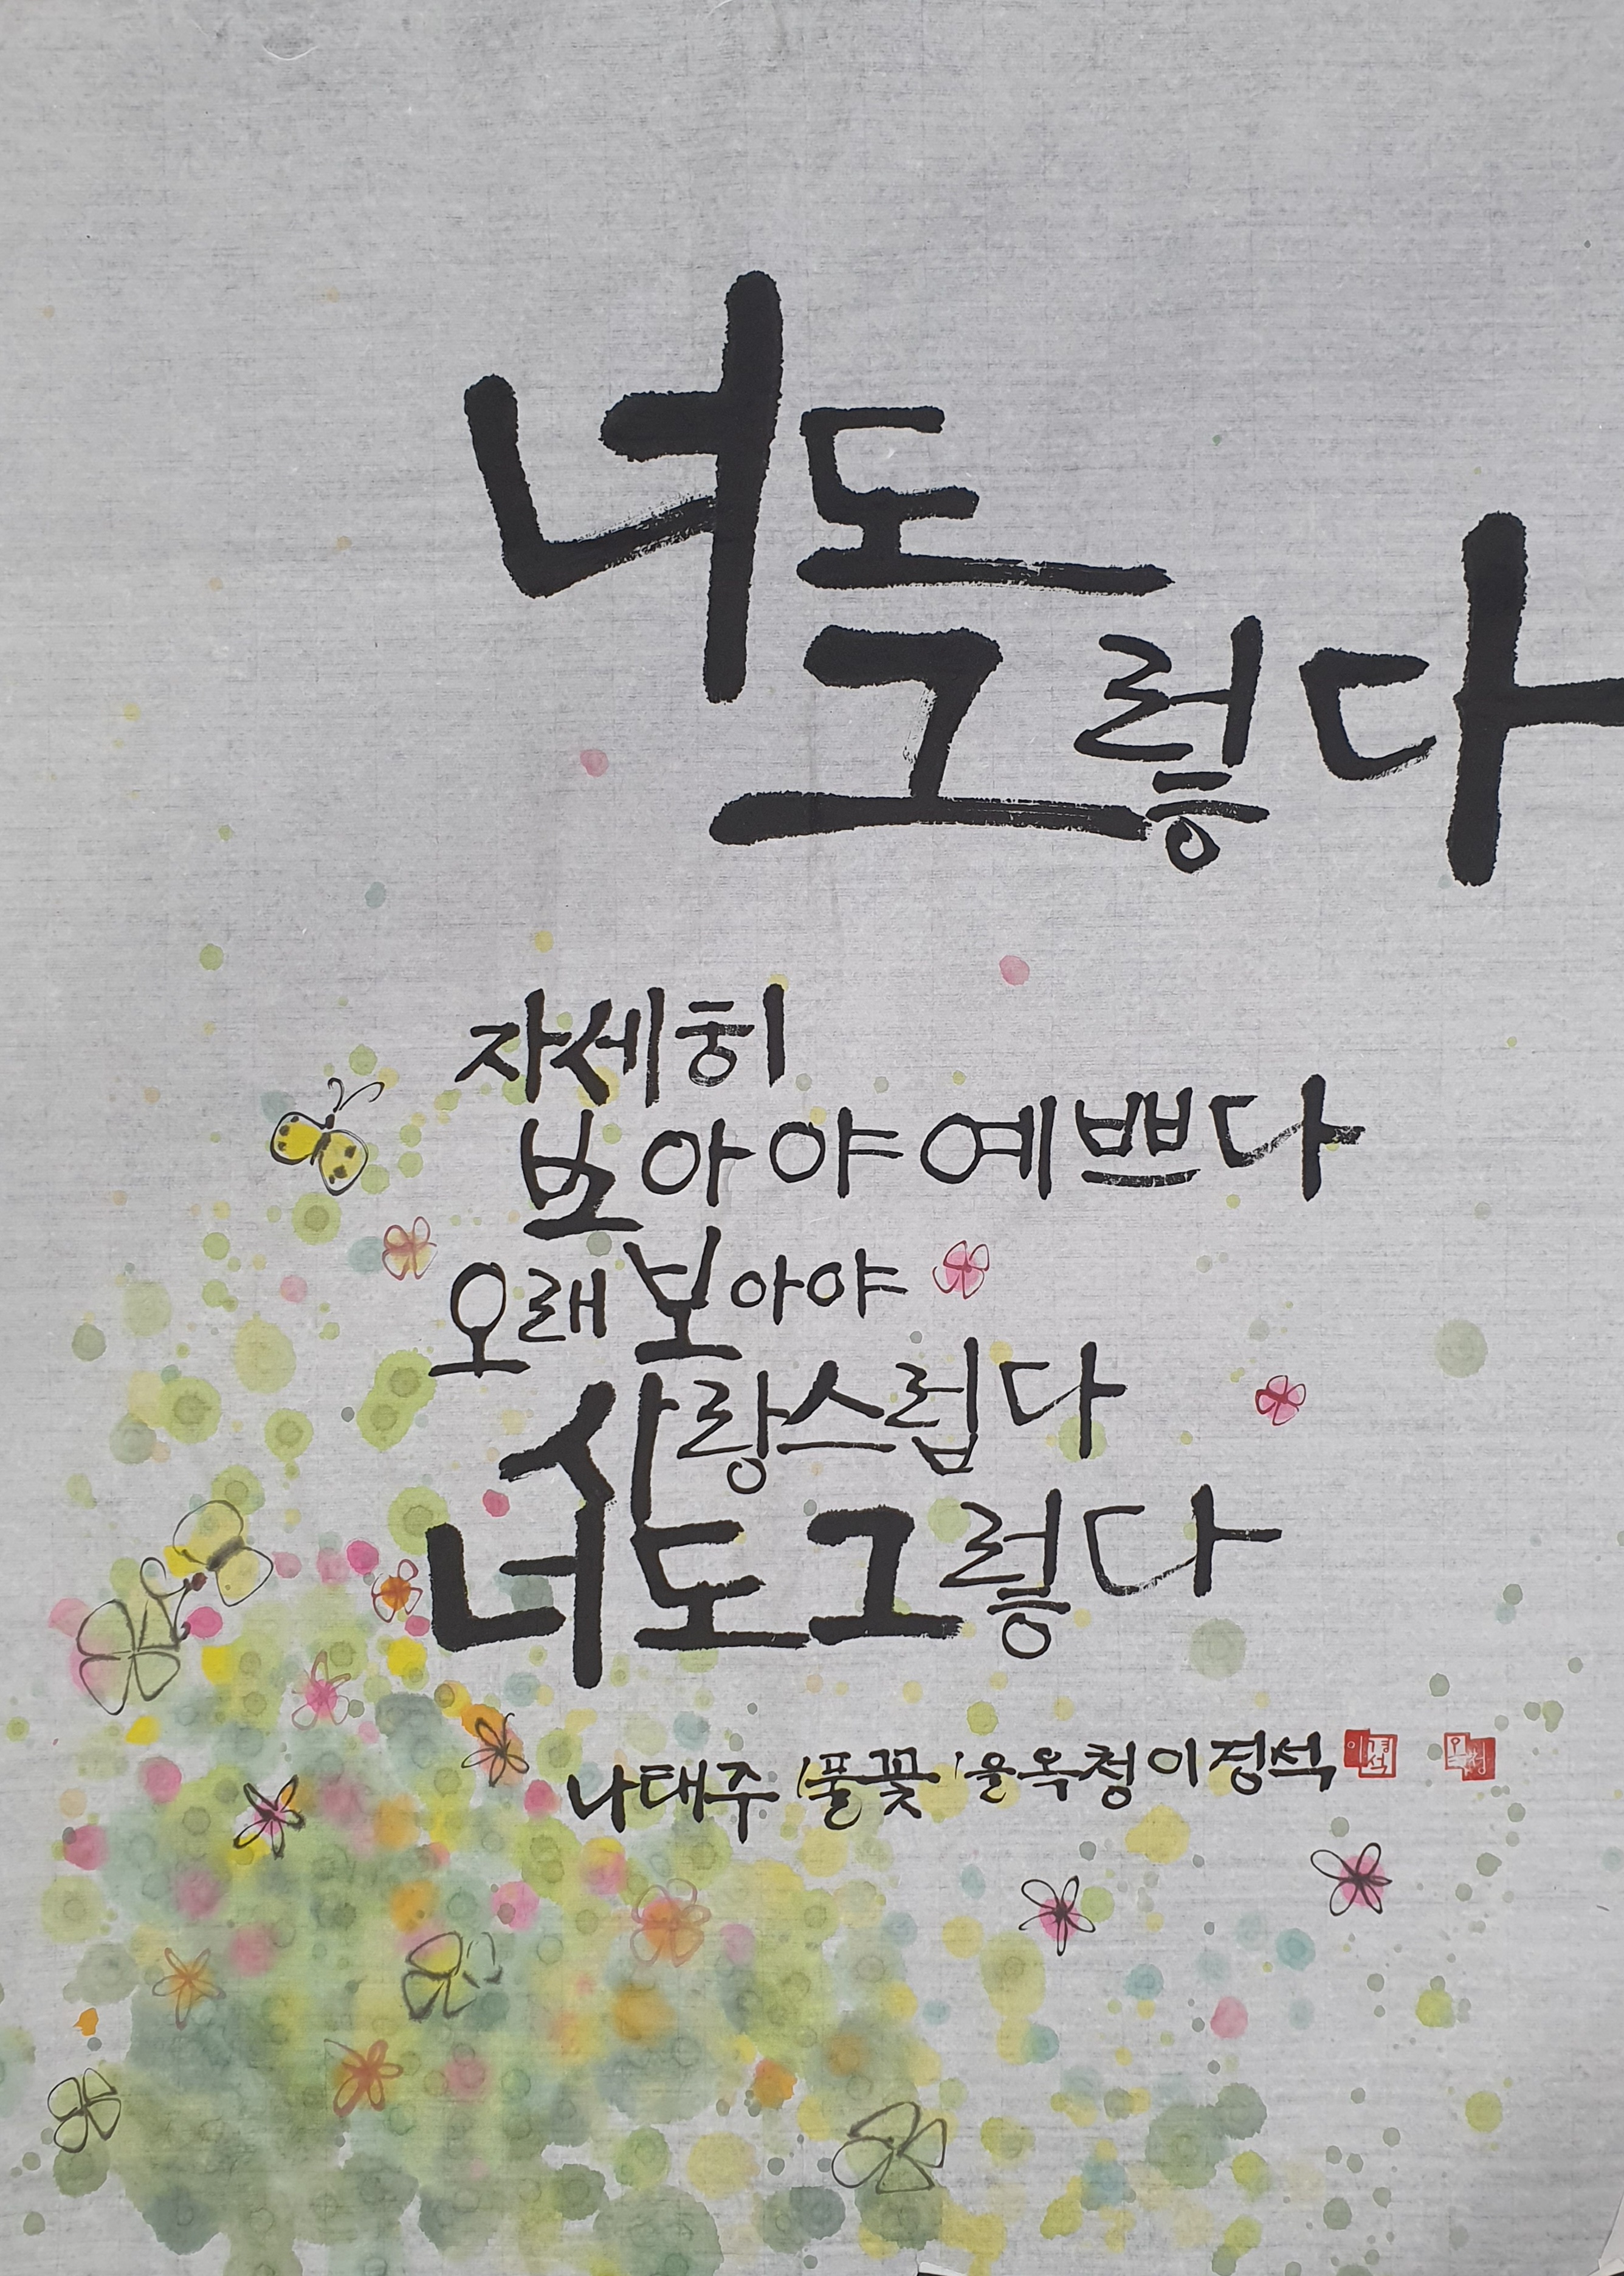 너도
그렇다
자세히
보아야 예쁘다
오래 보아야
사랑스럽다
너도 그렇다
나태주 '풀꽃' 을 옥청 이정석